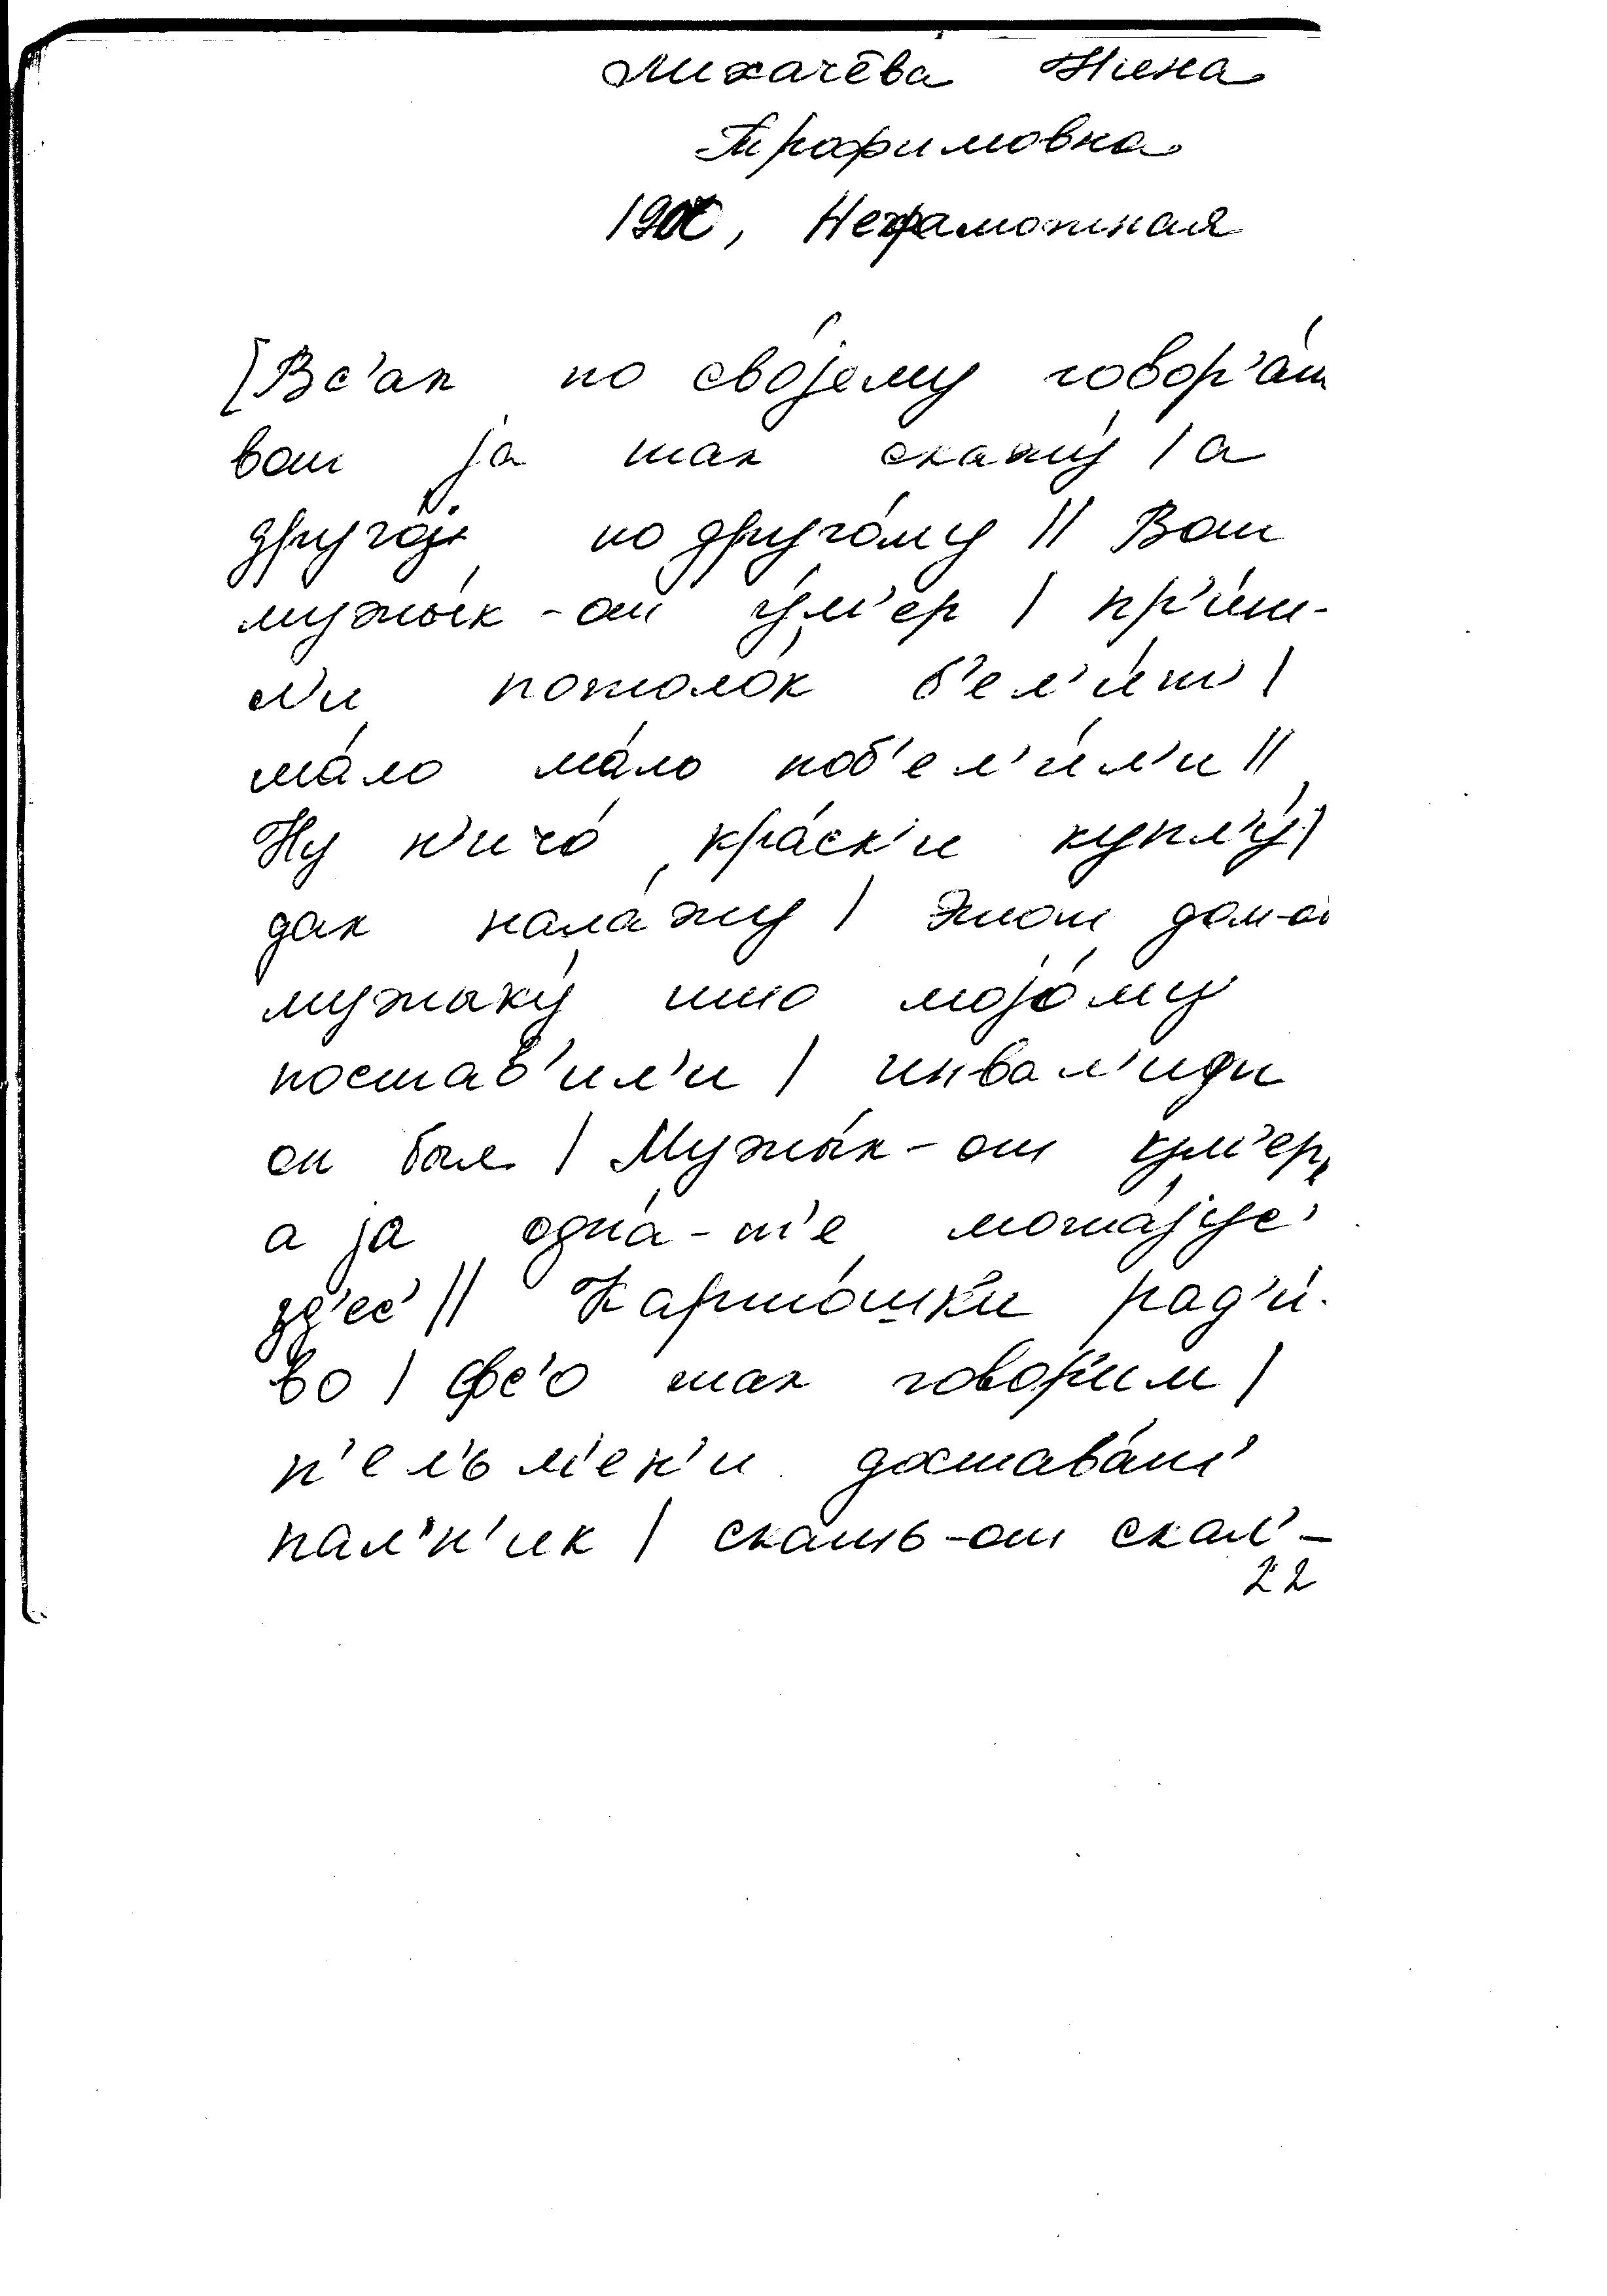 Лихачёва Нина
Трофимовна
Неграмотная
[Вс'ак по сво́јему говор'а́т
вот ја так скажу́ | а
друго́ј по друго́му || Вот
мужы́к-от у́м'ер | пр'ишл-
л'и потоло́к б'ел'и́т' |
ма́ло ма́ло поб'ел'и́л'и ||
Ну н'ичо́ кра́ск'и купл'у́ |
дак нала́жу | Этот дом-от
мужыку́ што мојо́му
постав'ил'и | инвал'иди
он был | Мужы́к-от у́м'ер,
а ја одна́-т'е мота́јус'
зд'ес' || Карто́шк'и рад'и́-
во | фс'о так говор'им |
п'ел'м'ен'и достава́т'
пал'н'ик | скать-от скал'-
22